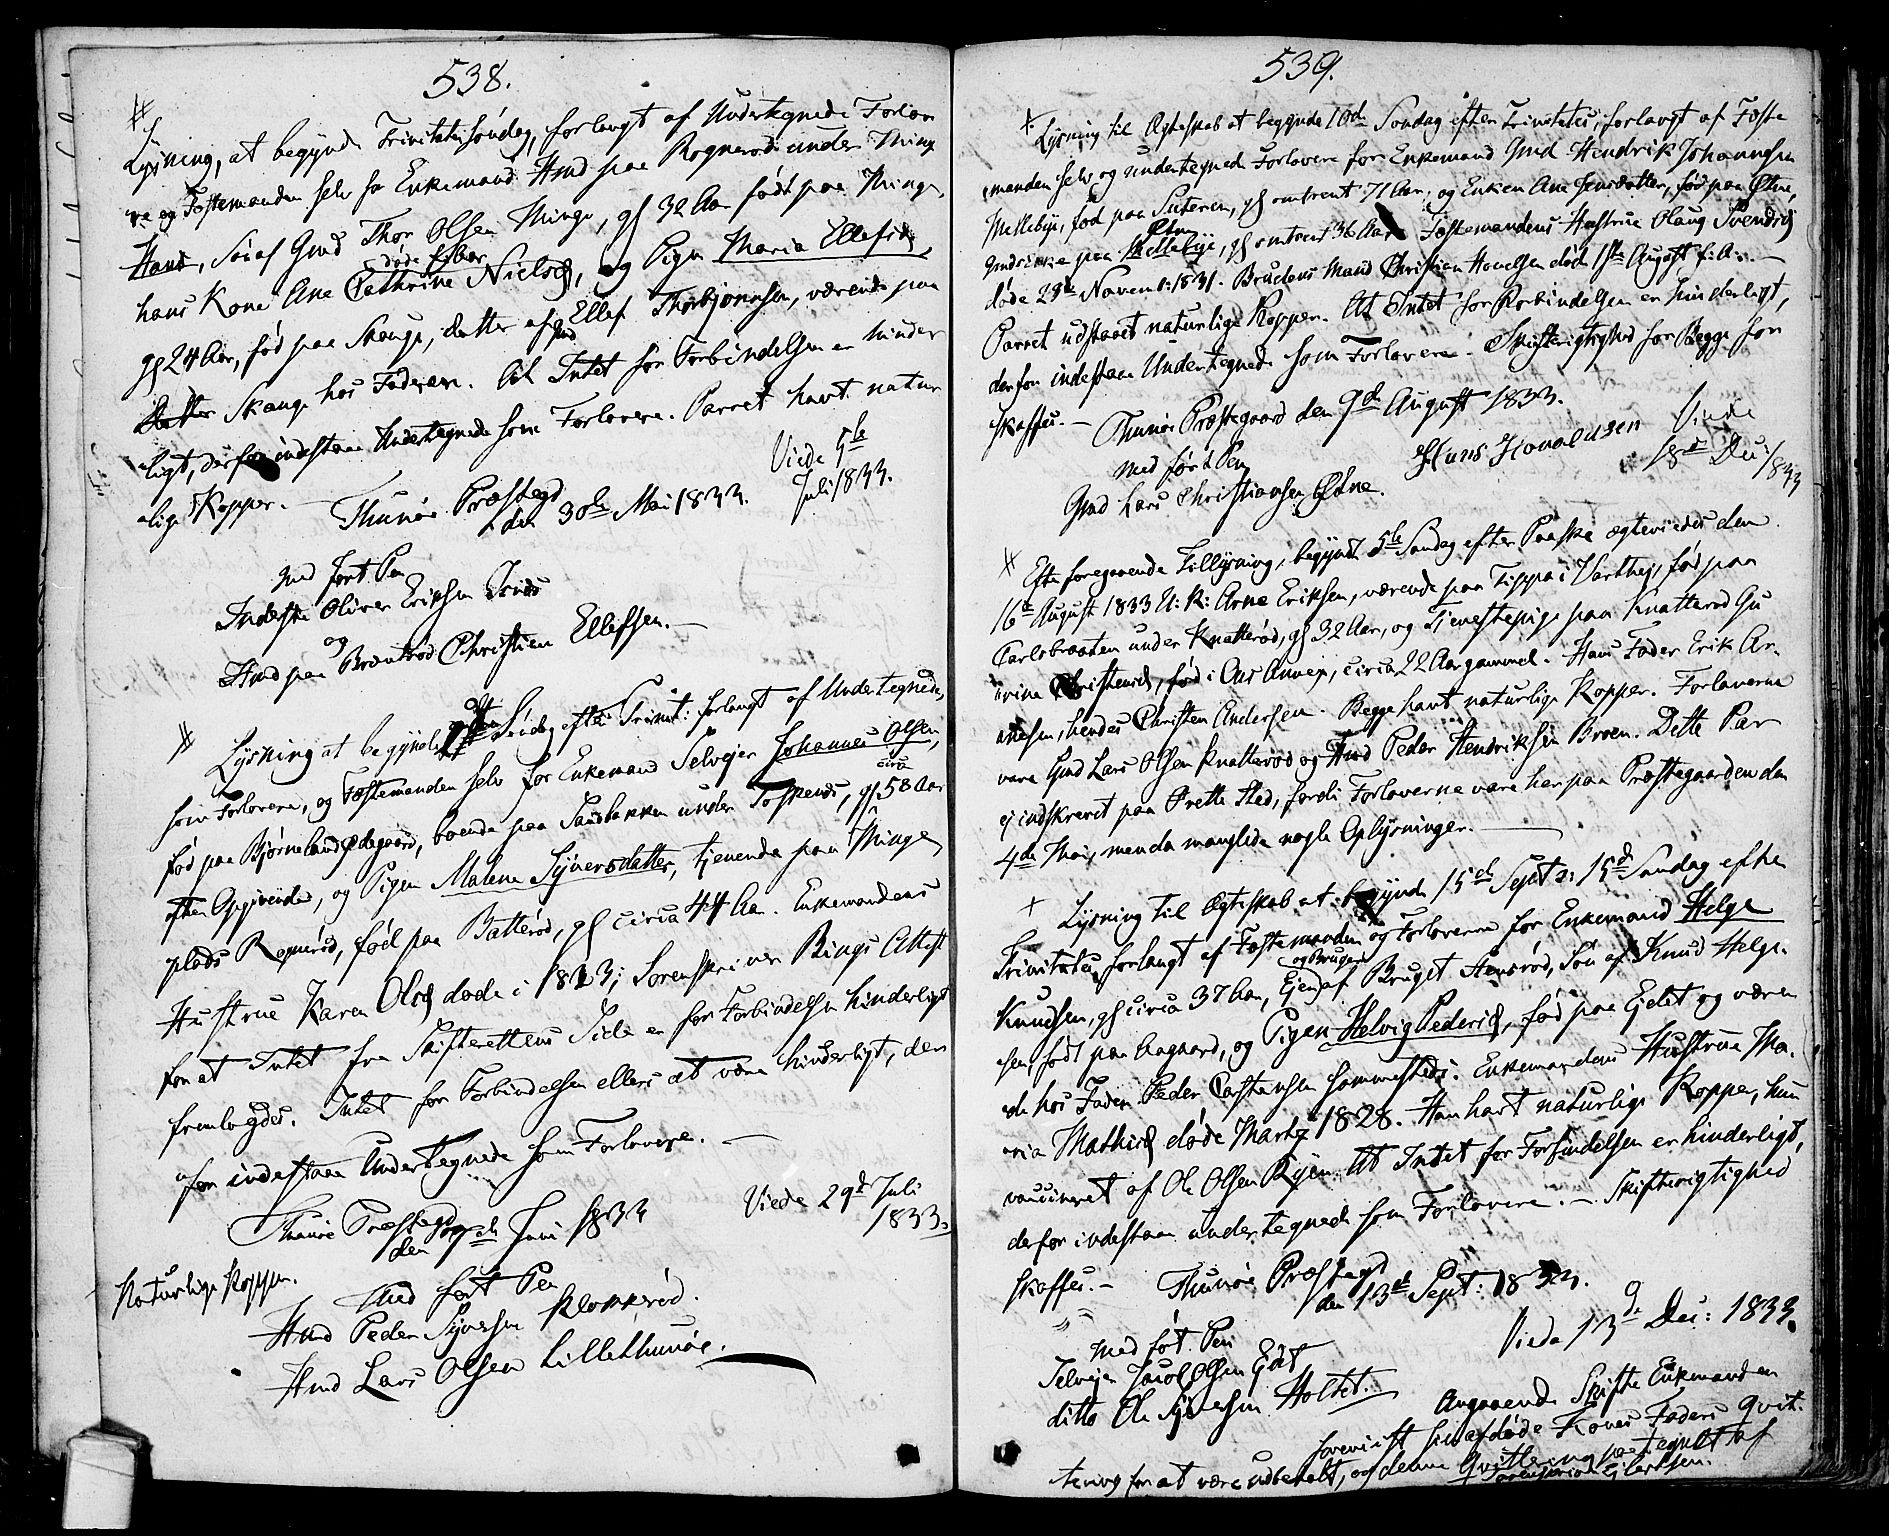 538.
Lysning, at begynde Trinitatis Söndag, forlangt af Undertegnede Forlove
re og Fæstemanden selv for Enkemand Hmd paa Rognerød under Thinge
Hans, Sön af Gmd Thor Olsen Thinge, gl 32 Aar født paa Thinge,
døde ifjor
hans Kone Ane Cathrine Nielsd, og Pigen Maria Ellefsd,
gl 24 Aar, fød paa Skauge, datter af Ellef Thorbjørnsen, værende paa
Skauge hos Faderen. At Intet for Forbindelsen er hinder
ligt, derfor indestaae Undertegnede som Forlovere. Parret havt natur
lige Kopper.
Thunøe Præstegd
den 30te Mai 1833.
Viede 5te
Juli 1833.
med ført Pen
Inderste Oliver Eriksen
og
Hmd paa Brøntrød Christian Ellefsen.
Lysning at begynde Söndag efter Trinit: forlangt af Undertegnede,
som Forlovere, og Fæstemanden selv for Enkemand Selveier Johannes Olsen,
circa
fød paa Bjørneland Ødegaard, boende paa Sandbakken under Toskeröd, gl 58 Aar
efter Opgivende, og Pigen Malene Syversdatter, tjenende paa Thinge
plads Rognerød, fød paa Batterød, gl circa 44 Aar. Enkemandens
Hustrue Karen Olsd døde i 1823; Sorenskriver Bings Attest
for at Intet fra Skifterettens Side er for Forbindelsen hinderligt
fremlagdes. Intet for Forbindelsen ellers at være hinderligt, der
for indestaae Undertegnede som Forlovere.
Thunøe Præstegd
den 7de Juni 1833
Viede 29d Juli
1833.
Naturlige Kopper.
Med ført Pen
Hmd Peder Syversen Klokkerød.
Hmd Lars Olsen Lillethunøe.
539.
Lysning til Ægteskab at begynde 10de Søndag efter Trinitatis, forlangt af Fæste
manden selv og undertegnede Forlovere for Enkemand Gmd Hendrik Johannesen
Mellebye, fød paa Suteren, gl omtrent 71 Aar, og Enken Ane Jensdatter, fød paa Østne,
Østne
paa Mellebye, gl omtrent 36 Aar. Fæstemandens Hustrue Olaug Svendsd
døde 29de Novemb: 1831. Brudens Mand Christian Hovelsen død 1ste August f. A.
Parret udstaaet naturlige Kopper. At Intet for Forbindelsen er hinderligt,
derfor indestaae Undertegnede som Forlovere. Skifterigtighed for Begge for
skaffes.
Thunøe Præstegaard den 9de August 1833.
med ført Pen
Gmd Lars Christiansen Østne.
Hans Hovaldsen
Viede
18de Dec: 1833
Efter foregaaende Tillysning, begyndt 5te Søndag efter Paaske ægteviedes den
16de August 1833 U: K: Arne Eriksen, værende paa Tippa i Varteig, fød paa
Carlsbraaten under Knatterød, gl 32 Aar, og Tjenestepige paa Knatterød Gu
rine Christensd, fød i Aas Annex, circa 22 Aar gammel. Hans Fader Erik Ar-
nesen, hendes Christen Andersen. Begge havt naturlige Kopper. Forloverne
vare Gmd Lars Olsen Knatterød og Hmd Peder Hendriksen Broen. Dette Par
ej indskrevet paa Rette Sted, fordi Forloverne vare her paa Præstegaarden den
4de Mai, men da manglede nogle Oplysninger.
Lysning til Ægteskab at begynde 15de Sept a: 15de Søndag efter
Trinitatis forlangt af Fæstemanden og Forloverne for Enkemand Helge
og Bruger
Knudsen, gl circa 37 Aar, Ejer af Bruget Stensrød, Sön af Knud Helge-
sen, født paa Aagaard, og Pigen Helvig Pedersd, fød paa Ejdet og væren
de hos Faderen Peder Carstensen sammesteds. Enkemandens Hustrue Ma-
ria Mathisd døde Marts 1828. Han havt naturlige Kopper, hun
vaccineret af Ole Olsen Ryen. At Intet for Forbindelsen er hinderligt,
derfor indestaae undertegnede som Forlovere. Skifterigtighed
skaffes.
Thunøe Præstegd
den 13de Sept: 1833.
med ført Pen
Selveier Jacob Olsen Ejdet
ditto Ole Syversen Holtet.
Viede 13de Dec: 1833.
Angaaende Skifte Enkemanden
foreviist sin afdøde Kones Faders Qvit-
tering for at være udbetalt, og denne Qvittering paategnet af
Sorenskriver Gjerdsen.